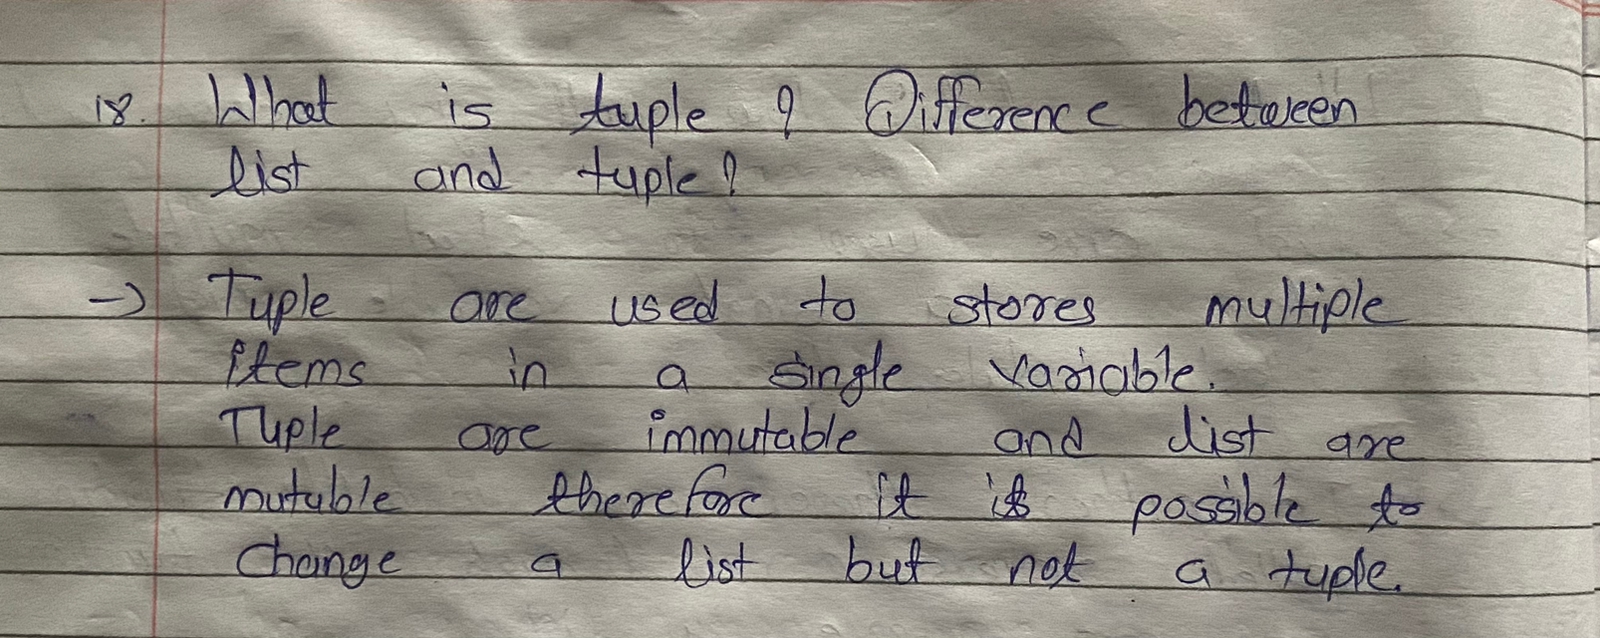 18. What is tuple ? Difference between
list and tuple?
→ Tuple are used to stores multiple
items in a single variable.
Tuple are immutable and list are
mutable therefore it is possible to
change a list but not a tuple.